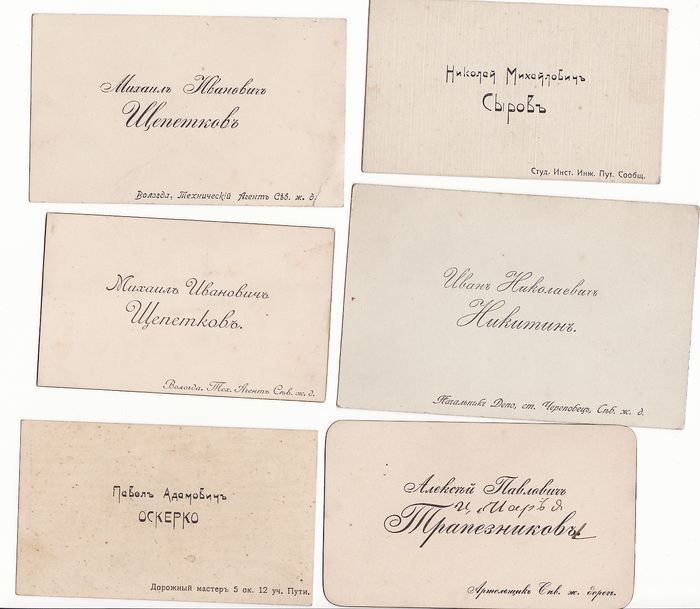 Михаилъ Ивановичъ
Щепетковъ
Вологда, Техническій Агентъ Сѣв. ж. д.
Николай Михайловичъ
Сыровъ
Студ. Инст. Инж. Пут. Сообщ.
Михаилъ Ивановичъ
Щепетковъ.
Вологда. Тех. Агентъ Сѣв. ж. д.
Иванъ Николаевичъ
Никитинъ.
Начальникъ Депо, ст. Череповецъ, Сѣв. ж. д.
Павелъ Адамовичъ
ОСКЕРКО
Дорожный мастеръ 5 ок. 12 уч. Пути.
Алексѣй Павловичъ
и Марья
Трапезниковы
Артельщикъ Сѣв. ж. дорог.